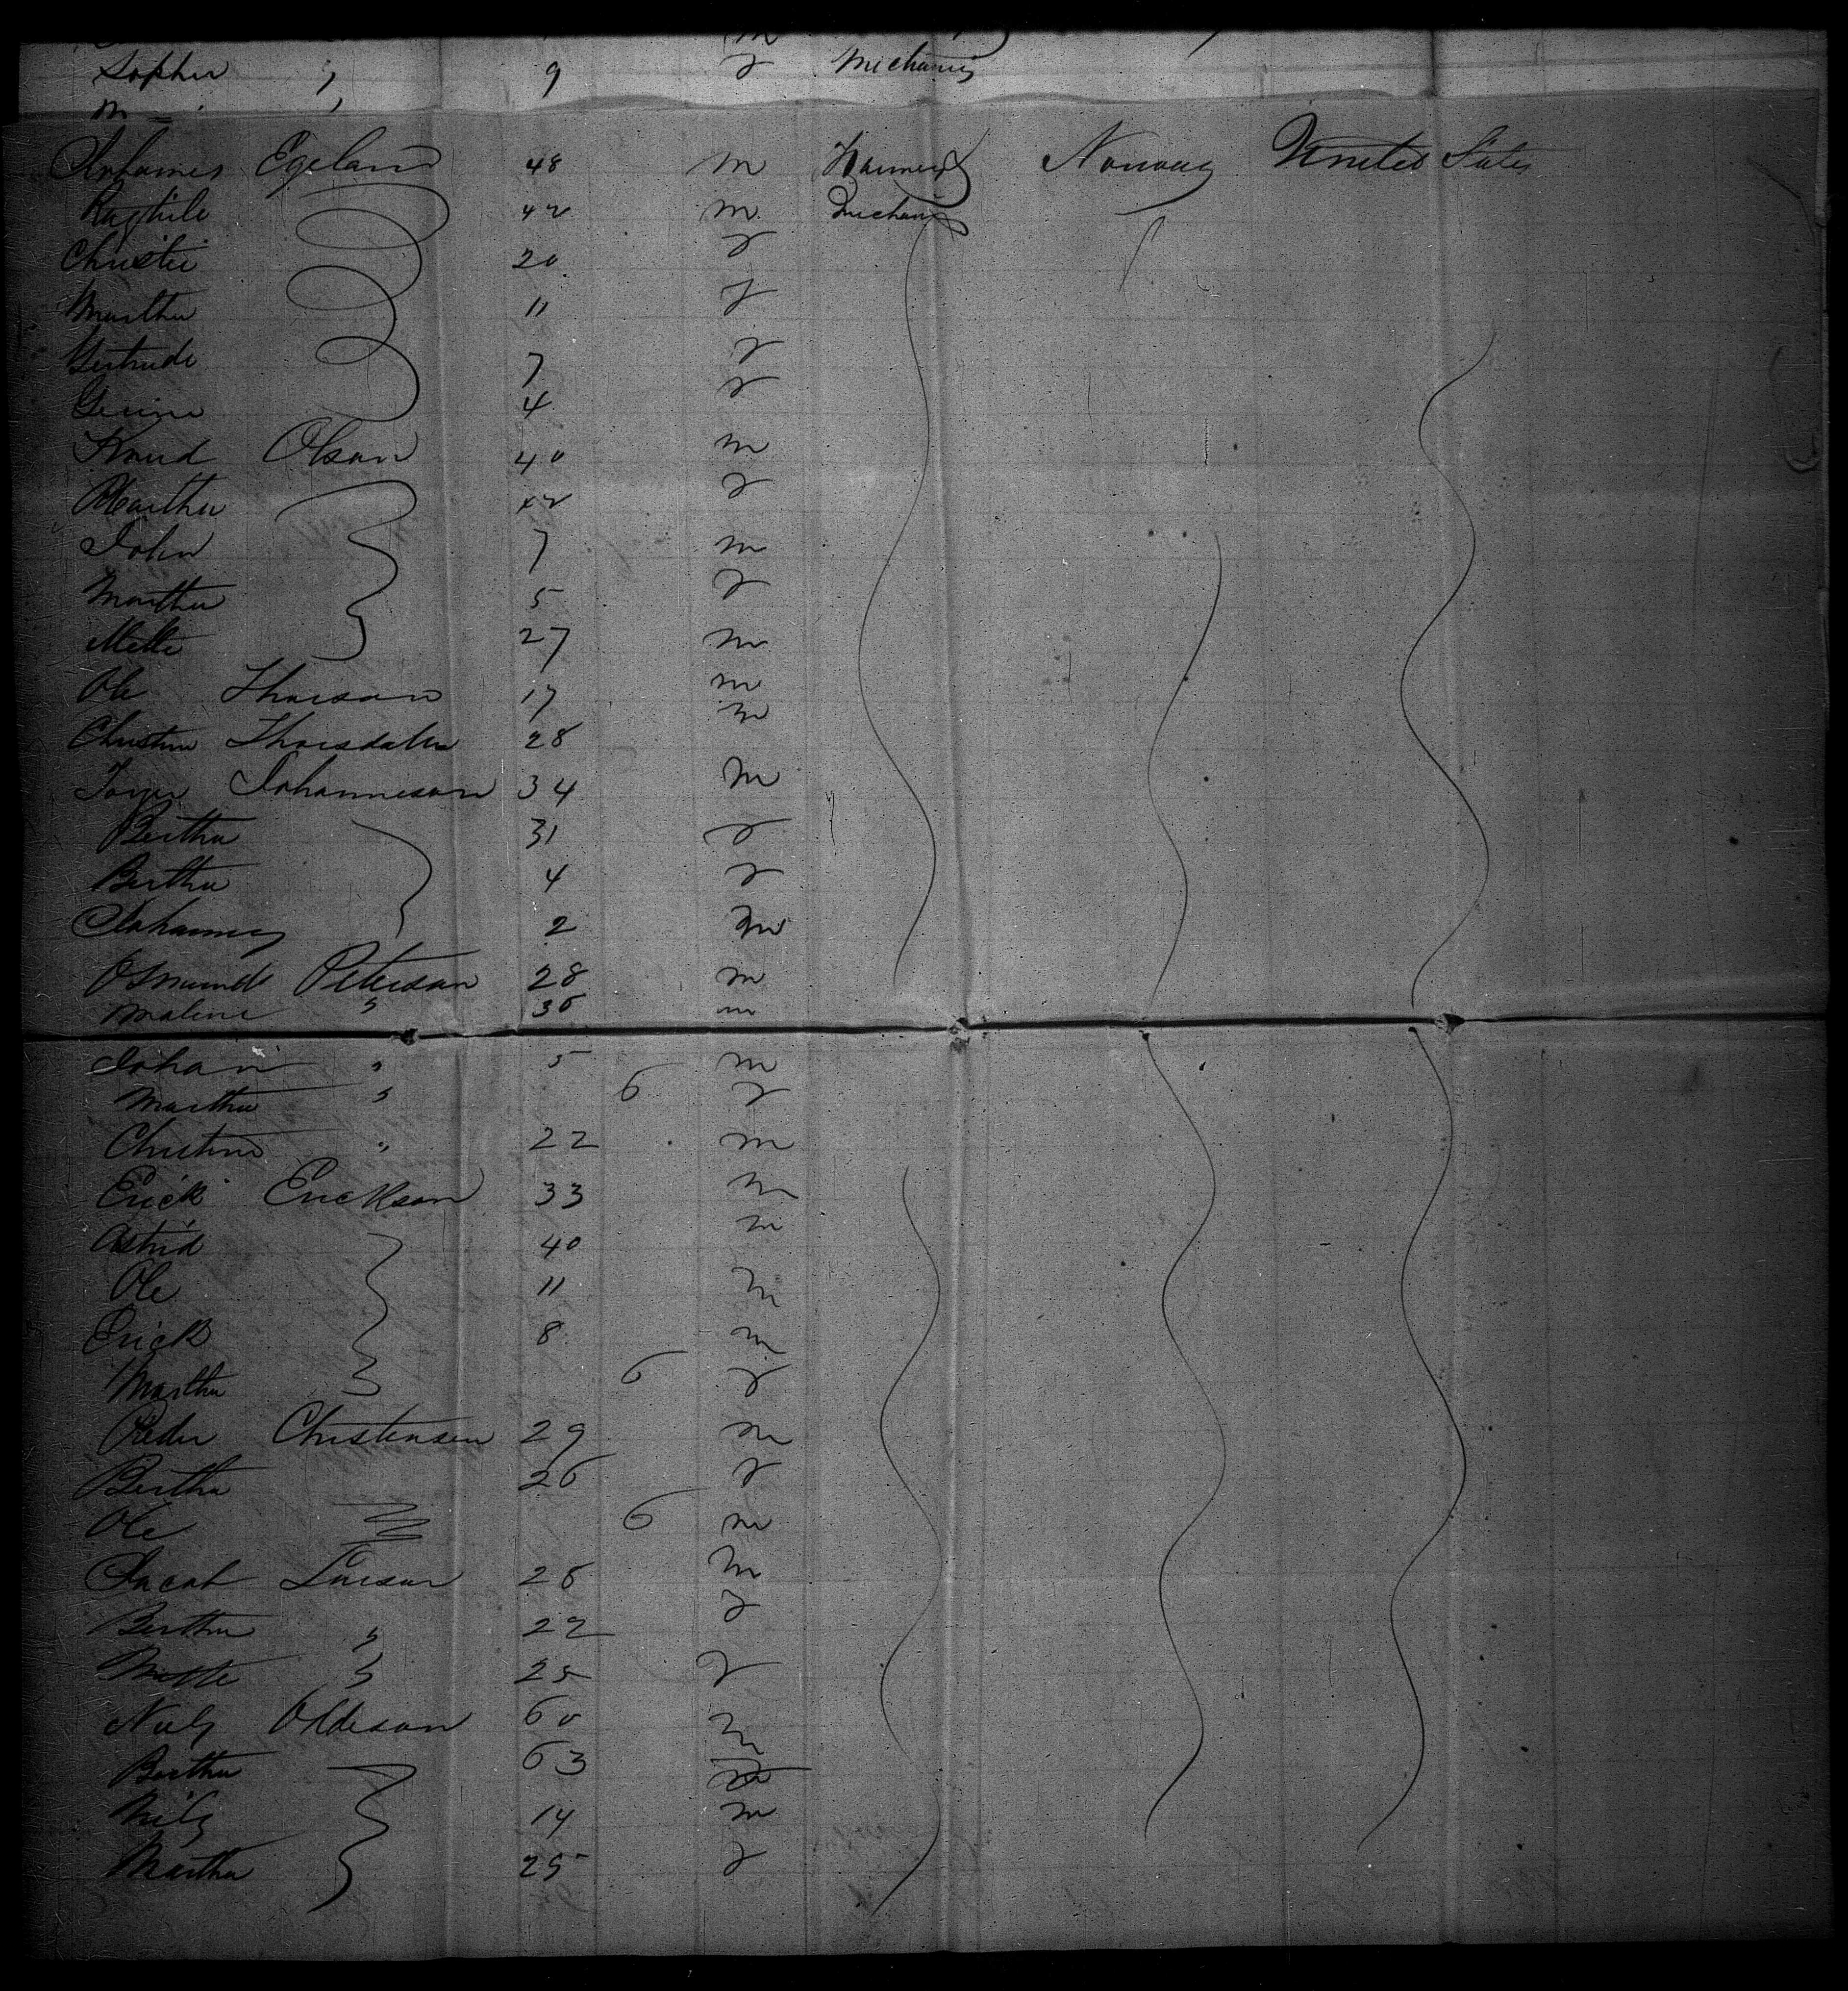 Sophia " 9 f Mechanic
Johannes Egeland 48 m Farmer & Norway United States
Raghild 42 m Mechanic
Christie 20 f
Martha 11 f
Gertrude 7 f
Serine 4 f
Knud Olson 40 m
Martha 42 f
John 7 m
Martha 5 f
Mette 27 m
Ole Thorson 17 m
Christine Thorsdatter 28 m
Johanneson 34 m
Bertha 31 f
Bertha 4 f
Johannes 2 m
Osmund Peterson 28 m
Maline " 36 m
Johan " 5 m
Martha " 6 f
Christine " 22 m
Erick Erickson 33 m
Astrid 40 m
Ole 11 m
Erick 8 m
Martha 6 f
Peder Christensen 29 m
Bertha 26 f
Ole 6 m
Jacob Larson 26 m
Bertha " 22 f
Mette " 25 f
Niels Oldeson 60 m
Bertha 63
Nils 14 m
Martha 25 f